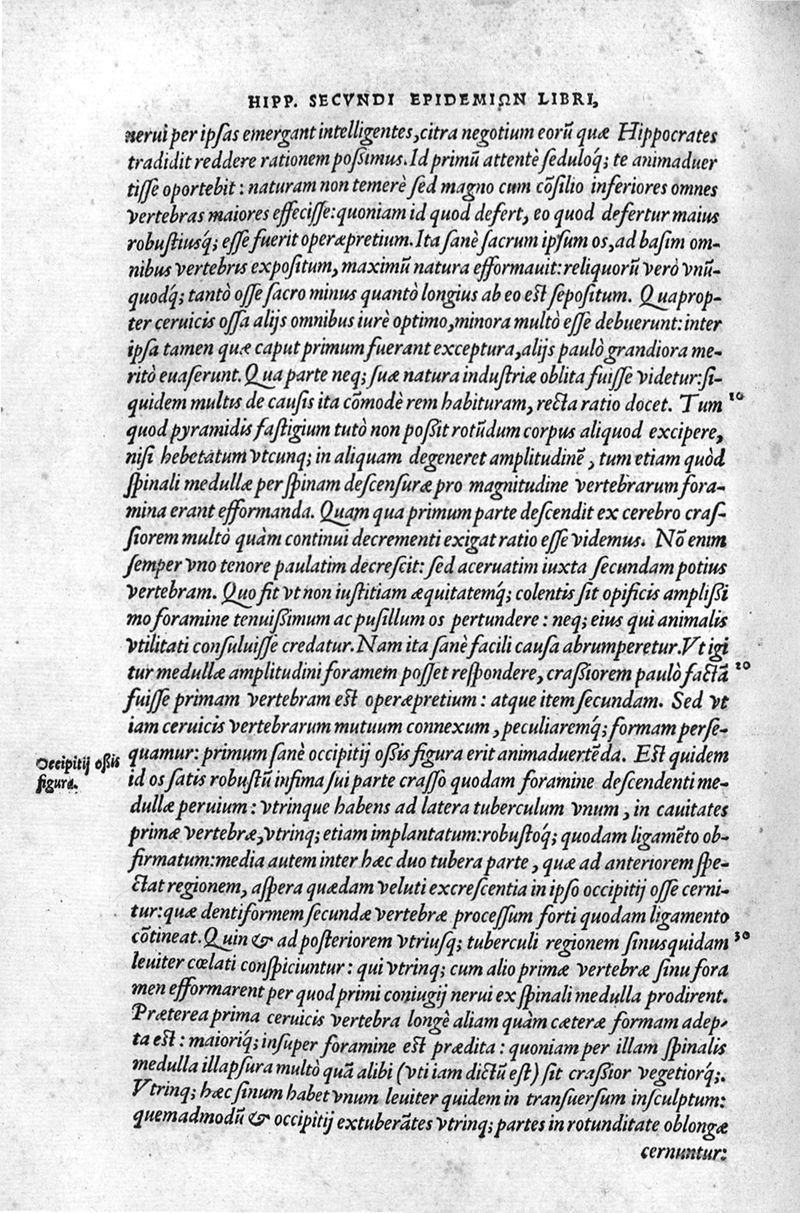 HIPP. SECVNDI EPIDEMIΩN LIBRI,
nerui per ipſas emergant intelligentes, citra negotium eorũ quæ Hippocrates
tradidit reddere rationem poßimus. Id primũ attentè ſeduloq́; te animaduer
tiſſe oportebit: naturam non temerè ſed magno cum cõſilio inferiores omnes
vertebras maiores effeciſſe: quoniam id quod defert, eo quod defertur maius
robuſtiusq́; eſſe fuerit operæpretium. Ita ſanè ſacrum ipſum os, ad baſim om-
nibus vertebris expoſitum, maximũ natura efformauit: reliquorũ verò vnũ-
quodq́; tantò oſſe ſacro minus quantò longius ab eo eſt ſepoſitum. Quaprop-
ter ceruicis oſſa alijs omnibus iurè optimo, minora multò eſſe debuerunt: inter
ipſa tamen quæ caput primum fuerant exceptura, alijs paulò grandiora me-
ritò euaſerunt. Qua parte neq; ſuæ natura induſtriæ oblita fuiſſe videtur: ſi-
quidem multis de cauſis ita cõmodè rem habituram, recta ratio docet. Tum 10
quod pyramidis faſtigium tutò non poßit rotũdum corpus aliquod excipere,
niſi hebetatum vtcunq; in aliquam degeneret amplitudinẽ, tum etiam quòd
ſpinali medullæ per ſpinam deſcenſuræ pro magnitudine vertebrarum fora-
mina erant efformanda. Quam qua primum parte deſcendit ex cerebro craſ-
ſiorem multò quàm continui decrementi exigat ratio eſſe videmus. Nõ enim
ſemper vno tenore paulatim decreſcit: ſed aceruatim iuxta ſecundam potius
vertebram. Quo fit vt non iuſtitiam æquitatemq́; colentis ſit opificis amplißi
mo foramine tenuißimum ac puſillum os pertundere: neq; eius qui animalis
vtilitati conſuluiſſe credatur. Nam ita ſanè facili cauſa abrumperetur. Vt igi
tur medullæ amplitudini foramem poſſet reſpondere, craßiorem paulò factã 20
fuiſſe primam vertebram eſt operæpretium: atque item ſecundam. Sed vt
iam ceruicis vertebrarum mutuum connexum, peculiaremq́; formam perſe-
quamur: primum ſanè occipitij oßis figura erit animaduertẽda. Eſt quidem
Occipitij oßis
figura.
id os ſatis robuſtũ infima ſui parte craſſo quodam foramine deſcendenti me-
dullæ peruium: vtrinque habens ad latera tuberculum vnum, in cauitates
primæ vertebræ, vtrinq; etiam implantatum: robuſtoq́; quodam ligamẽto ob-
firmatum: media autem inter hæc duo tubera parte, quæ ad anteriorem ſpe-
ctat regionem, aſpera quædam veluti excreſcentia in ipſo occipitij oſſe cerni-
tur: quæ dentiformem ſecundæ vertebræ proceſſum forti quodam ligamento
cõtineat. Quin & ad poſteriorem vtriuſq; tuberculi regionem ſinus quidam 30
leuiter cœlati conſpiciuntur: qui vtrinq; cum alio primæ vertebræ ſinu fora
men efformarent per quod primi coniugij nerui ex ſpinali medulla prodirent.
Præterea prima ceruicis vertebra longè aliam quàm cæteræ formam adep-
ta eſt: maioriq́; inſuper foramine eſt prædita: quoniam per illam ſpinalis
medulla illapſura multò quã alibi (vti iam dictũ eſt) ſit craßior vegetiorq́;.
Vtrinq; hæc ſinum habet vnum leuiter quidem in tranſuerſum inſculptum:
quemadmodũ & occipitij extuberãtes vtrinq; partes in rotunditate oblongæ
cernuntur: